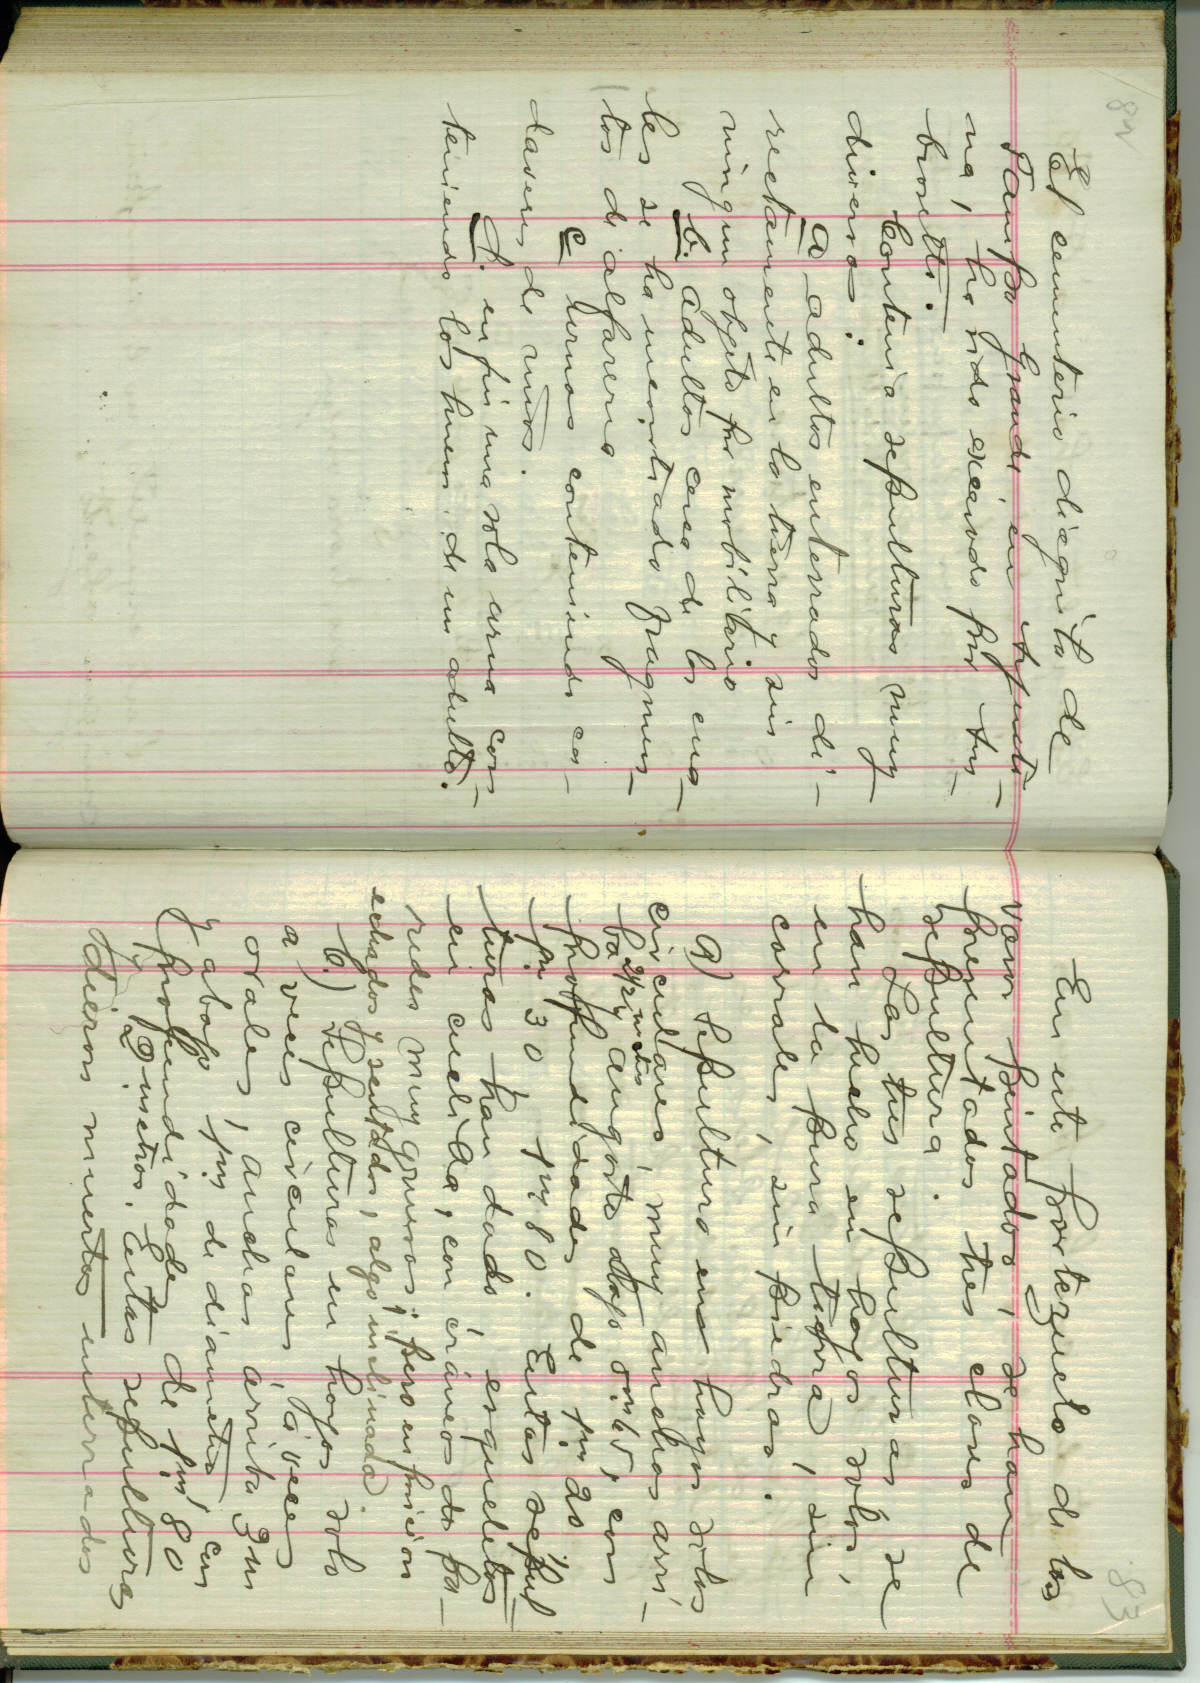 82
El cementerio diaguita de
Pampa Grande, en Argenti-
na, ha sido excavado por Am-
brosetti.
Contenia sepulturas muy
diversas:
a adultos enterrados di-
rectamente en la tierra y sin
ningun objeto por mobiliario
b. adultos cerca de los cua-
les se ha encontrado fragmen-
tos de alfareria
c urnas conteniendo ca-
daveres de niños.
d. en fin una sola urna con-
teniendo los huesos de un adulto.
83
En este portezuelo de los
vasos pintados, se han
presentados tres clases de
sepultura.
Las tres sepulturas se
han hecho en hoyos solos,
en la pura tierra, sin
corrales, sin piedras.
a) Sepultura en hoyos solos
circulares, muy anchos arri-
ba 2 1/2 metros y angosto abajo 0m65, con
profundidades de 1m20
fn 30 1m80. Estas sepul
turas han dado esqueletos
en cuclilla, con cráneos de pa-
redes muy gruesos; pero en posicion
echados y sentados, algo inclinada.
b.) Sepulturas en hoyos solo
a veces circulares, a veces
ovales, anchas arriba 3m
y abajo 1m de diametro con
profundidades de 1m80
y 2 metros. Estas sepulturas
dieron muertos enterrados